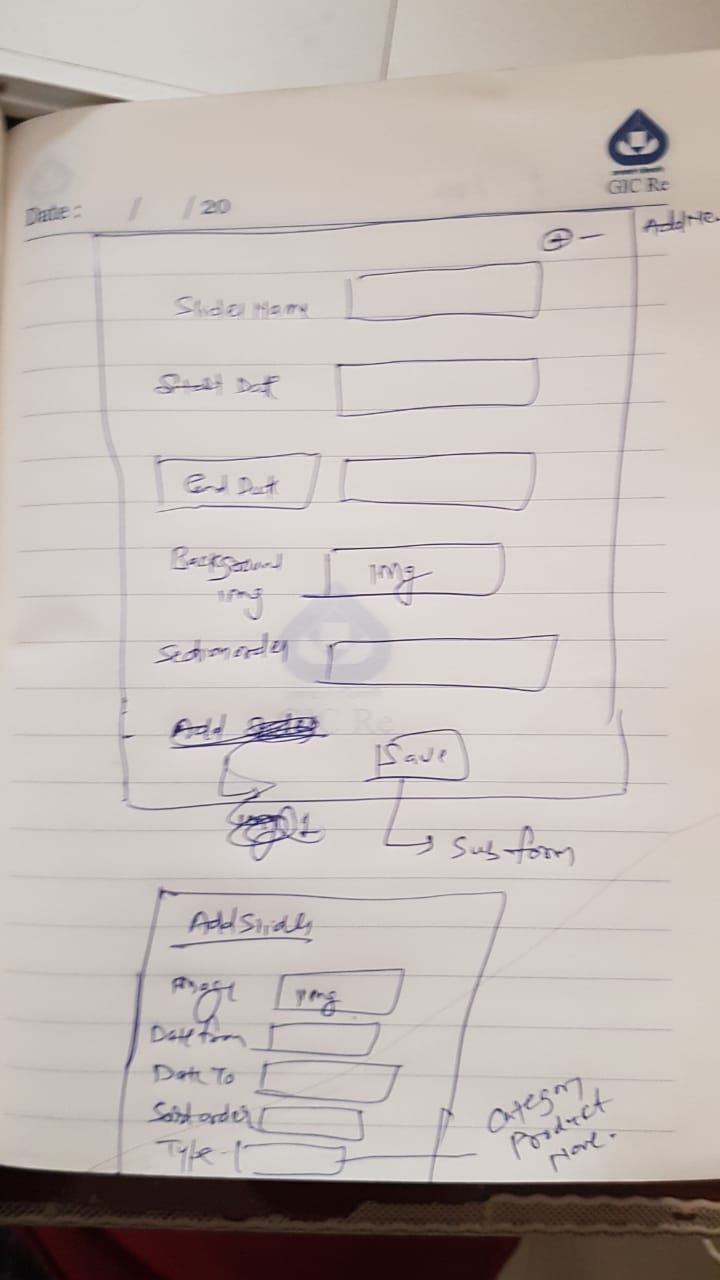 GIC Re
Date: / /20
Add Ne
+ -
Slider Name
Start Date
End Date
Background
img
img
Section order
GIC Re
Add
Save
Sub form
Add Slider
Image
img
Date from
Date To
Sort order
Type
Category
Product
None.